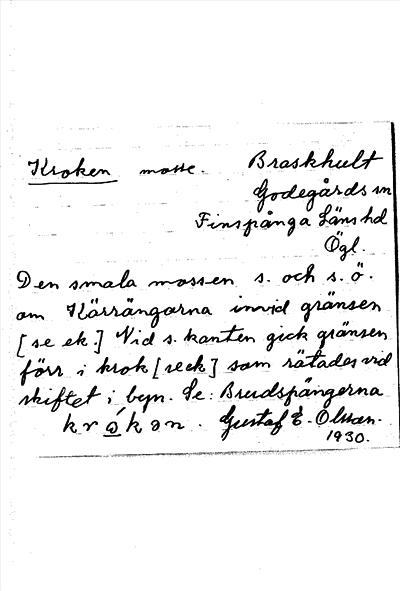 Kroken mosse. Braskhult
Godegårds sn
Finspånga Läns hd
Ögl.
Den smala mossen s. och s.ö.
om Kärrängarna invid gränsen
[se ek.] Vid s. kanten gick gränsen
förr i krok [se ek] som rätades vid
skiftet i byn. Se: Brudspångerna
krɷ́kən. Gustaf E. Olsson.
1930.